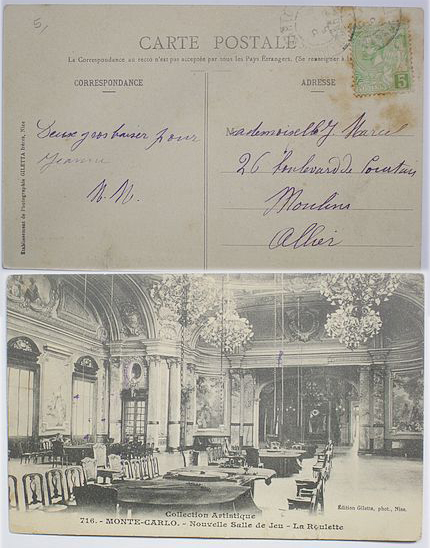 5,
CARTE POSTALE
La Correspondance au recto n'est pas acceptée par tous les Pays Etrangers. (Se renseigner à
CORRESPONDANCE
ADRESSE
5
Deux gros baiser pour
Jeanne
M. M.
Mademoiselle J. Marcel
26 boulevard de Courtais
Moulins
Allier
Etablissement de Photographie GILETTA frères, Nice
Collection Artistique
716. - MONTE-CARLO. - Nouvelle Salle de Jeu - La Roulette
Édition Giletta, phot., Nice.